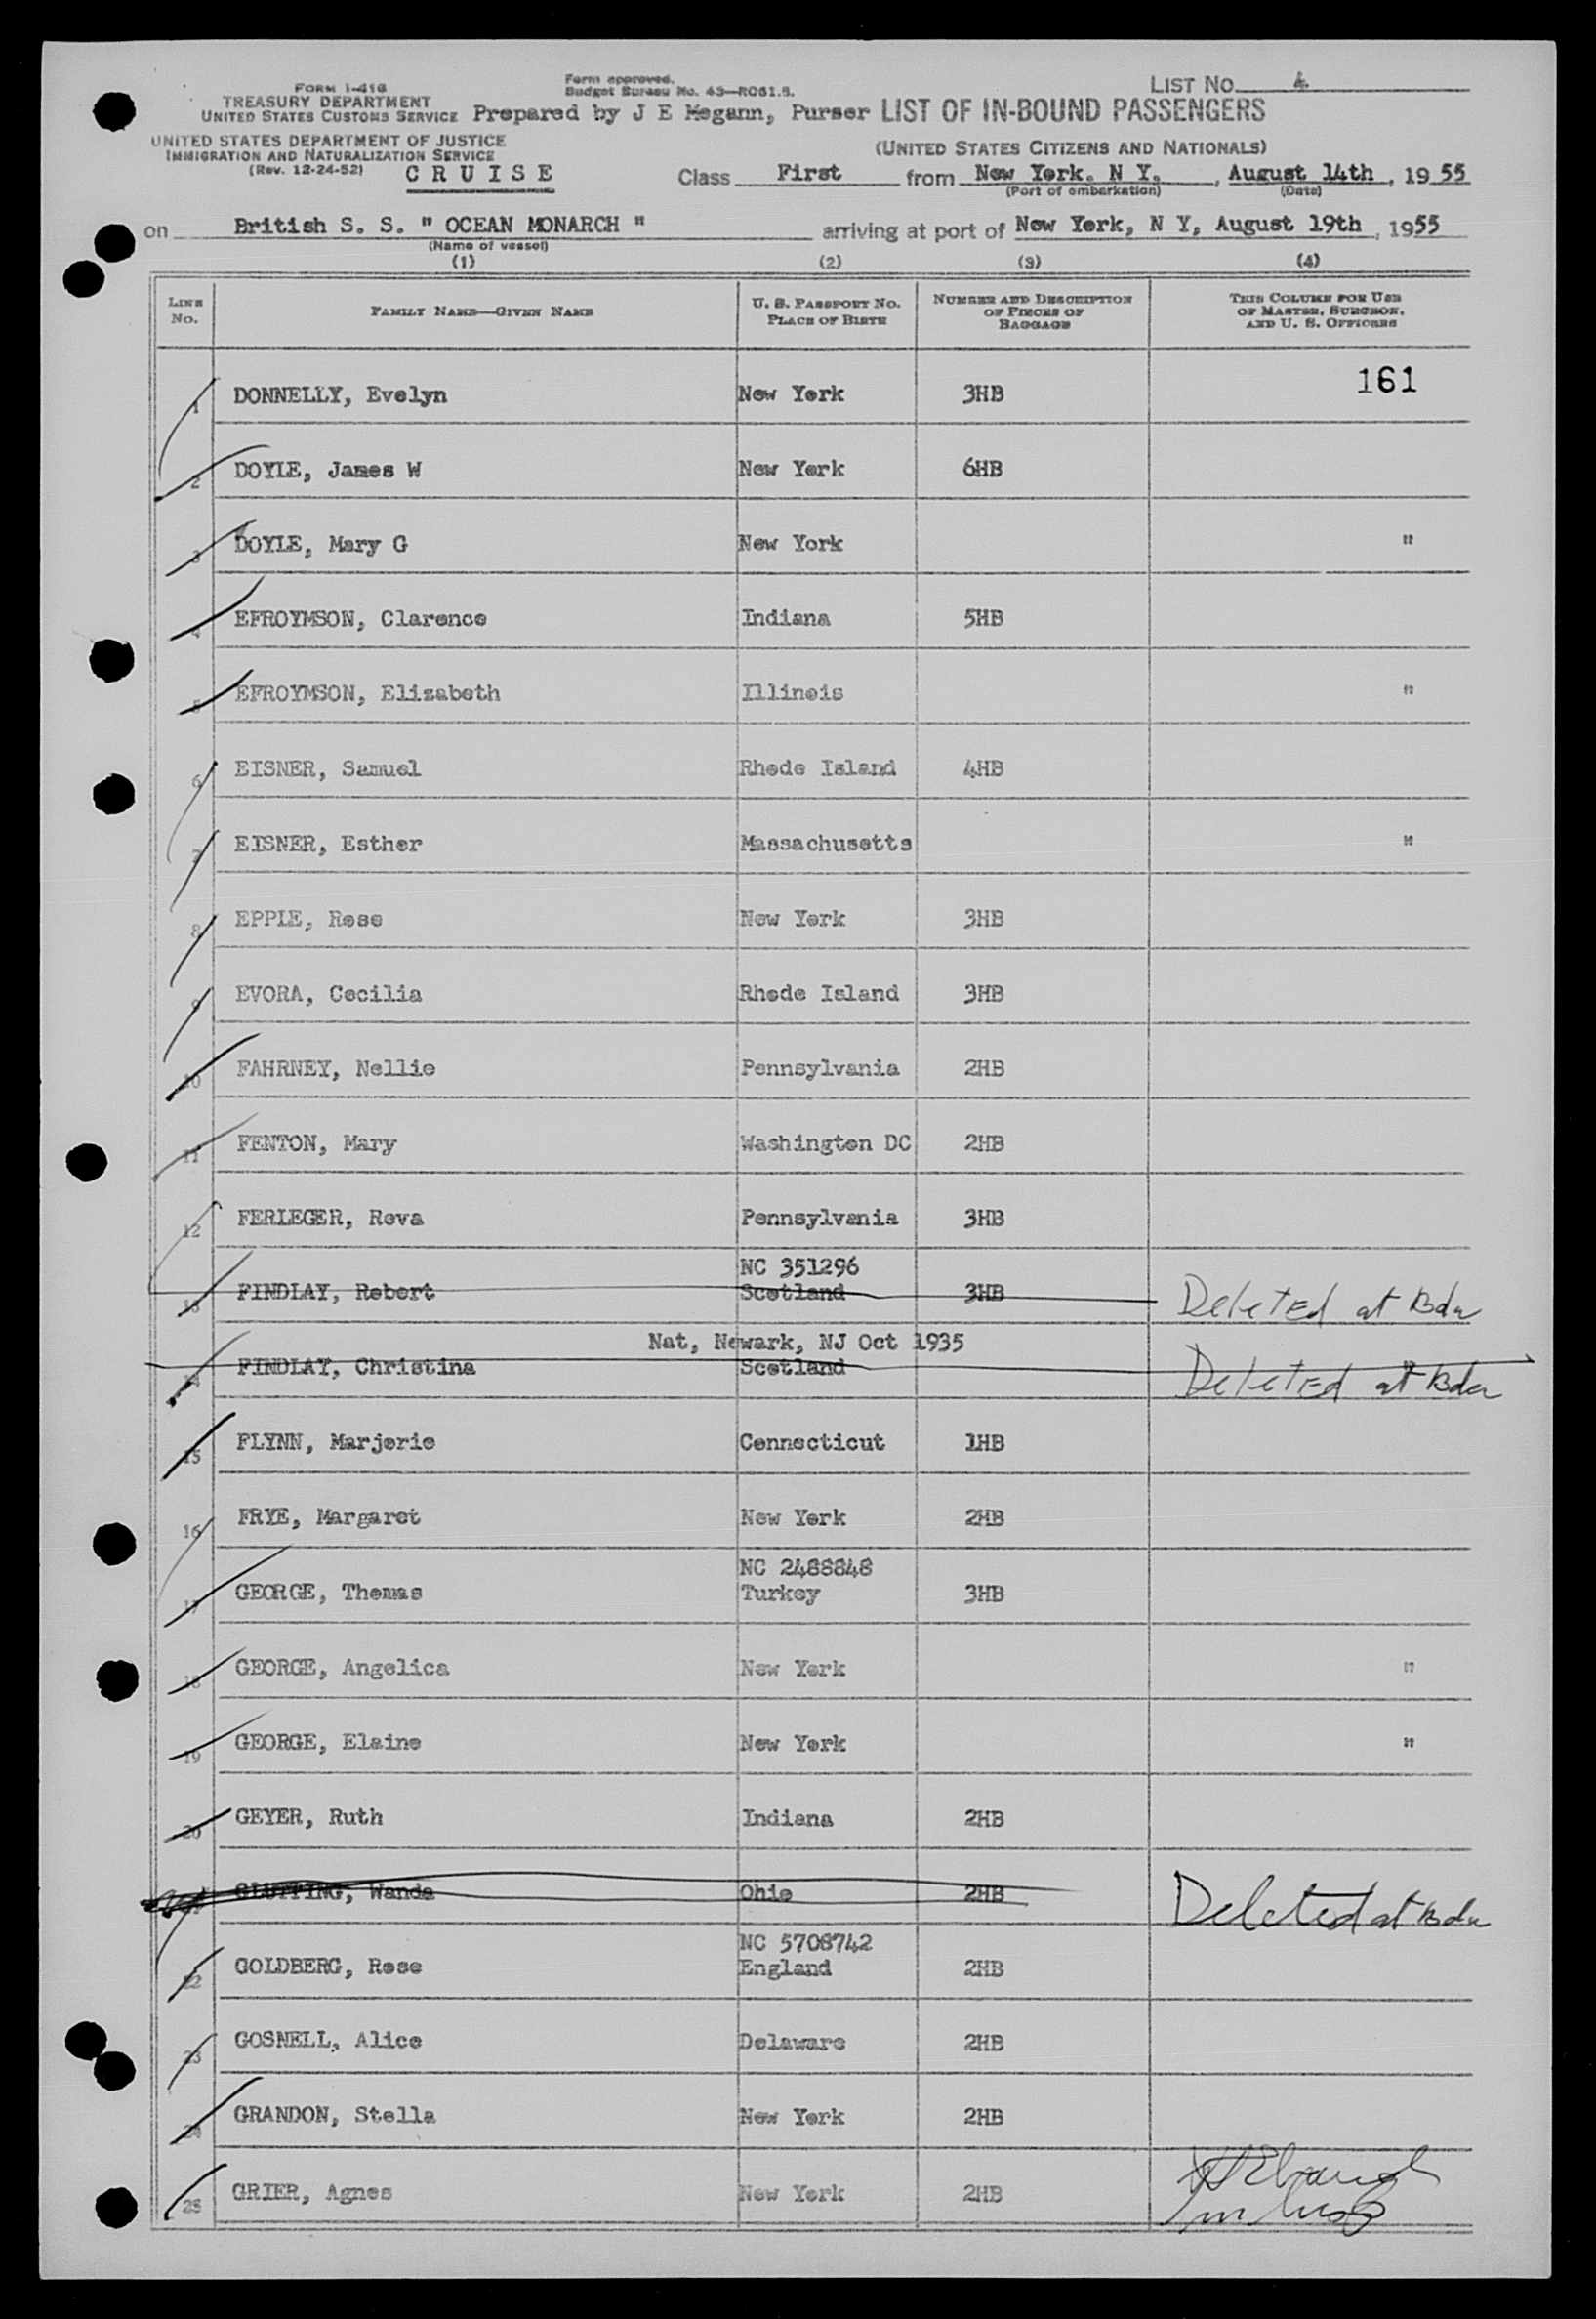 FORM I-418
TREASURY DEPARTMENT
UNITED STATES CUSTOMS SERVICE
Form approved.
Budget Bureau No. 43—R061.5.
LIST No. 4
Prepared by J E Megann, Purser LIST OF IN-BOUND PASSENGERS
UNITED STATES DEPARTMENT OF JUSTICE
IMMIGRATION AND NATURALIZATION SERVICE
(Rev. 12-24-52)
(UNITED STATES CITIZENS AND NATIONALS)
C R U I S E
Class First from New York, N Y, , August 14th , 19 55
(Port of embarkation) (Date)
on British S. S. " OCEAN MONARCH " arriving at port of New York, N Y, August 19th , 1955
(Name of vessel)
(1) (2) (3) (4)
LINE No. FAMILY NAME—GIVEN NAME U. S. PASSPORT NO. PLACE OF BIRTH NUMBER AND DESCRIPTION OF PIECES OF BAGGAGE THIS COLUMN FOR USE OF MASTER, SURGEON, AND U. S. OFFICERS
161
1 DONNELLY, Evelyn New York 3HB
2 DOYLE, James W New York 6HB
3 DOYLE, Mary G New York "
4 EFROYMSON, Clarence Indiana 5HB
5 EFROYMSON, Elizabeth Illinois "
6 EISNER, Samuel Rhode Island 4HB
7 EISNER, Esther Massachusetts "
8 EPPLE, Rose New York 3HB
9 EVORA, Cecilia Rhode Island 3HB
10 FAHRNEY, Nellie Pennsylvania 2HB
11 FENTON, Mary Washington DC 2HB
12 FERLEGER, Reva Pennsylvania 3HB
NC 351296
13 FINDLAY, Robert Scotland 3HB Deleted at Bda
Nat, Newark, NJ Oct 1935
14 FINDLAY, Christina Scotland " Deleted at Bda
15 FLYNN, Marjorie Connecticut 1HB
16 FRYE, Margaret New York 2HB
NC 2488848
17 GEORGE, Thomas Turkey 3HB
18 GEORGE, Angelica New York "
19 GEORGE, Elaine New York "
20 GEYER, Ruth Indiana 2HB
21 GLUTTING, Wanda Ohio 2HB Deleted at Bda
NC 5708742
22 GOLDBERG, Rose England 2HB
23 GOSNELL, Alice Delaware 2HB
24 GRANDON, Stella New York 2HB
25 GRIER, Agnes New York 2HB